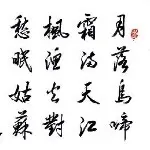 月落烏啼
霜滿天江
楓漁火對
愁眠姑蘇